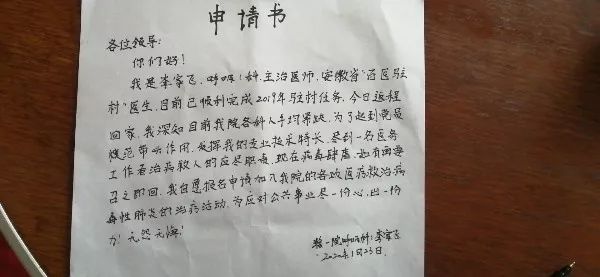 申请书
各位领导:
你们好!
我是李家飞,呼吸I科,主治医师,安徽省"百医驻
村"医生,目前已顺利完成2019年驻村任务,今日返程
回家,我深知目前我院各科人手均紧缺,为了起到党员
模范带头作用,发挥我的专业技术特长,尽到一名医务
工作者治病救人的应尽职责,现在病毒肆虐,如有需要
召之即回,我自愿报名申请加入我院的各项医疗救治病
毒性肺炎的治疗活动,为应对公共事业尽一份心,出一份
力!无怨无悔!
一院呼吸I科:李家飞
2020年1月23日.